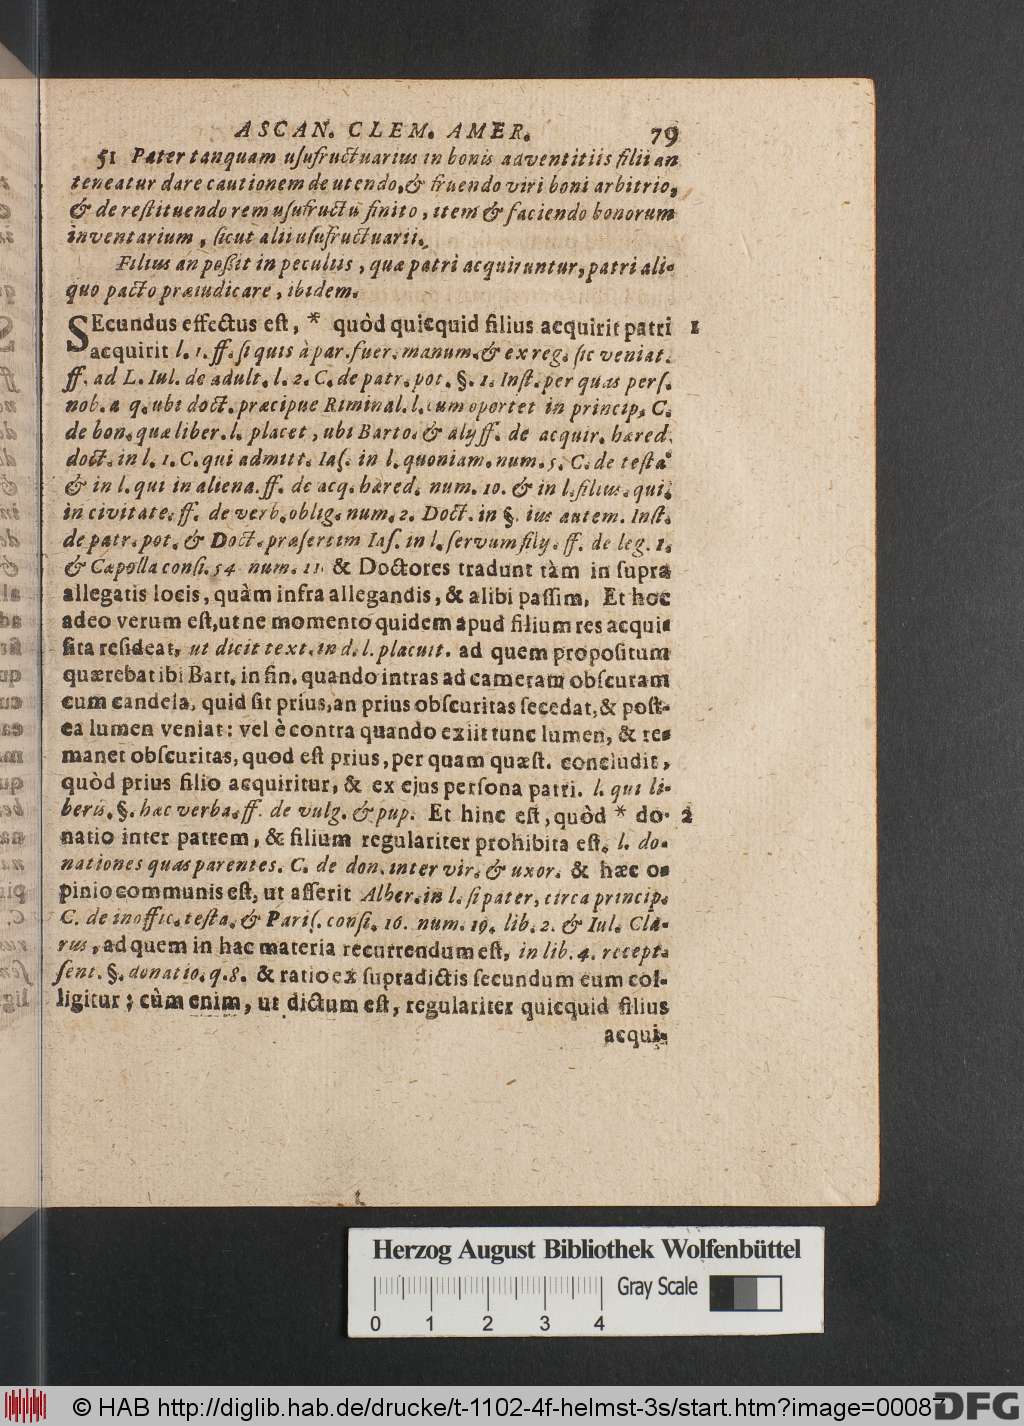 ASCAN. CLEM. AMER. 79
51 Pater tanquam uſufructuarius in bonis adventitiis filii an
teneatur dare cautionem de utendo, & fruendo viri boni arbitrio,
& de reſtituendo rem uſufructu finito, item & faciendo bonorum
inventarium, ſicut alii uſufructuarii.
Filius an poßit in peculiis, quæ patri acquiruntur, patri ali-
quo pacto præiudicare, ibidem.
SEcundus effectus eſt, * quòd quicquid filius acquirit patri 1
acquirit l. 1. ff. ſi quis à par. fuer. manum. & ex reg. ſic veniat.
ff. ad L. Iul. de adult. l. 2. C. de patr. pot. §. 1. Inſt. per quas perſ.
nob. a q. ubi doct. præcipue Riminal. l. cum oportet in princip. C.
de bon. quæ liber. l. placet, ubi Barto. & alij ff. de acquir. hæred.
doct. in l. 1. C. qui admitt. Iaſ. in l. quoniam. num. 5. C. de teſta.
& in l. qui in aliena. ff. de acq. hæred. num. 10. & in l. filius. qui.
in civitate. ff. de verb. oblig. num. 2. Doct. in §. ius autem. Inſt.
de patr. pot. & Doct. præſertim Iaſ. in l. ſervum filij. ff. de leg. 1.
& Cæpolla conſi. 54. num. 11. & Doctores tradunt tàm in ſupra
allegatis locis, quàm infra allegandis, & alibi paſſim, Et hoc
adeo verum eſt, ut ne momento quidem apud filium res acqui-
ſita reſideat, ut dicit text. in d. l. placuit. ad quem propoſitum
quærebat ibi Bart. in fin. quando intras ad cameram obſcuram
cum candela, quid ſit prius, an prius obſcuritas ſecedat, & poſt-
ea lumen veniat: vel è contra quando exiit tunc lumen, & re-
manet obſcuritas, quod eſt prius, per quam quæſt. concludit,
quòd prius filio acquiritur, & ex ejus perſona patri. l. qui li-
beris. §. hæc verba. ff. de vulg. & pup. Et hinc eſt, quòd * do- 2
natio inter patrem, & filium regulariter prohibita eſt. l. do-
nationes quas parentes. C. de don. inter vir. & uxor. & hæc o-
pinio communis eſt, ut aſſerit Alber. in l. ſi pater, circa princip.
C. de inoffic. teſta. & Pariſ. conſi. 16. num. 19. lib. 2. & Iul. Cla-
rus, ad quem in hac materia recurrendum eſt, in lib. 4. recept.
ſent. §. donatio. q. 8. & ratio ex ſupradictis ſecundum eum col-
ligitur; cùm enim, ut dictum eſt, regulariter quicquid filius
acqui-
Herzog August Bibliothek Wolfenbüttel
Gray Scale
0 1 2 3 4
© HAB http://diglib.hab.de/drucke/t-1102-4f-helmst-3s/start.htm?image=00087
DFG